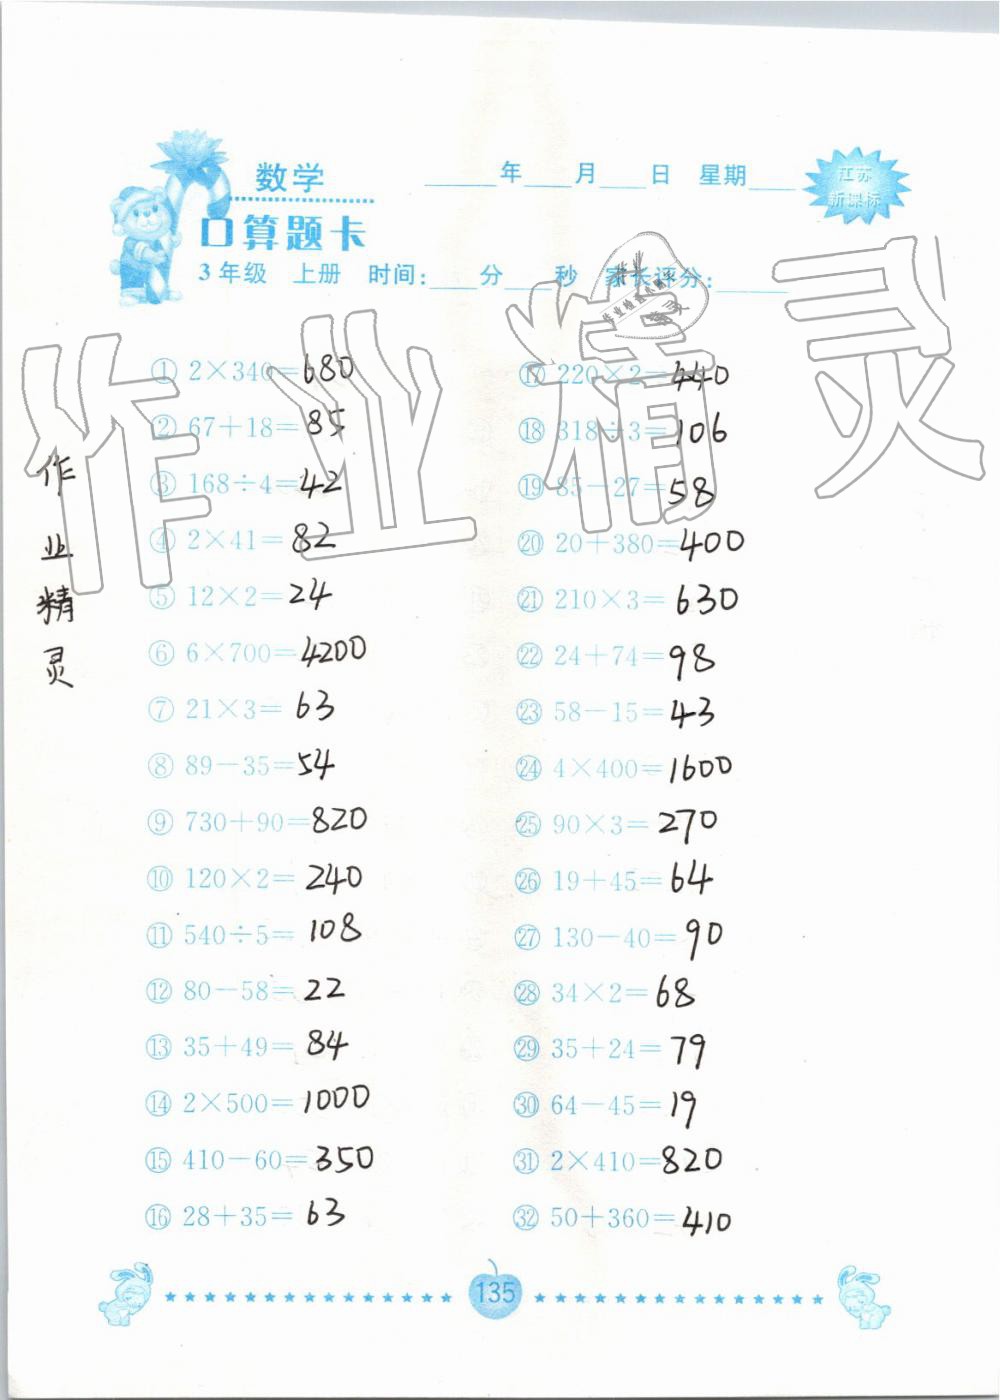 数学
____年____月____日 星期____
江苏
新课标
口算题卡
3年级 上册 时间:____分____秒 家长评分:____
作业精灵
① 2×340=680
② 67+18=85
③ 168÷4=42
④ 2×41=82
⑤ 12×2=24
⑥ 6×700=4200
⑦ 21×3=63
⑧ 89-35=54
⑨ 730+90=820
⑩ 120×2=240
⑪ 540÷5=108
⑫ 80-58=22
⑬ 35+49=84
⑭ 2×500=1000
⑮ 410-60=350
⑯ 28+35=63
⑰ 220×2=440
⑱ 318÷3=106
⑲ 85-27=58
⑳ 20+380=400
㉑ 210×3=630
㉒ 24+74=98
㉓ 58-15=43
㉔ 4×400=1600
㉕ 90×3=270
㉖ 19+45=64
㉗ 130-40=90
㉘ 34×2=68
㉙ 35+24=79
㉚ 64-45=19
㉛ 2×410=820
㉜ 50+360=410
作业精灵
135